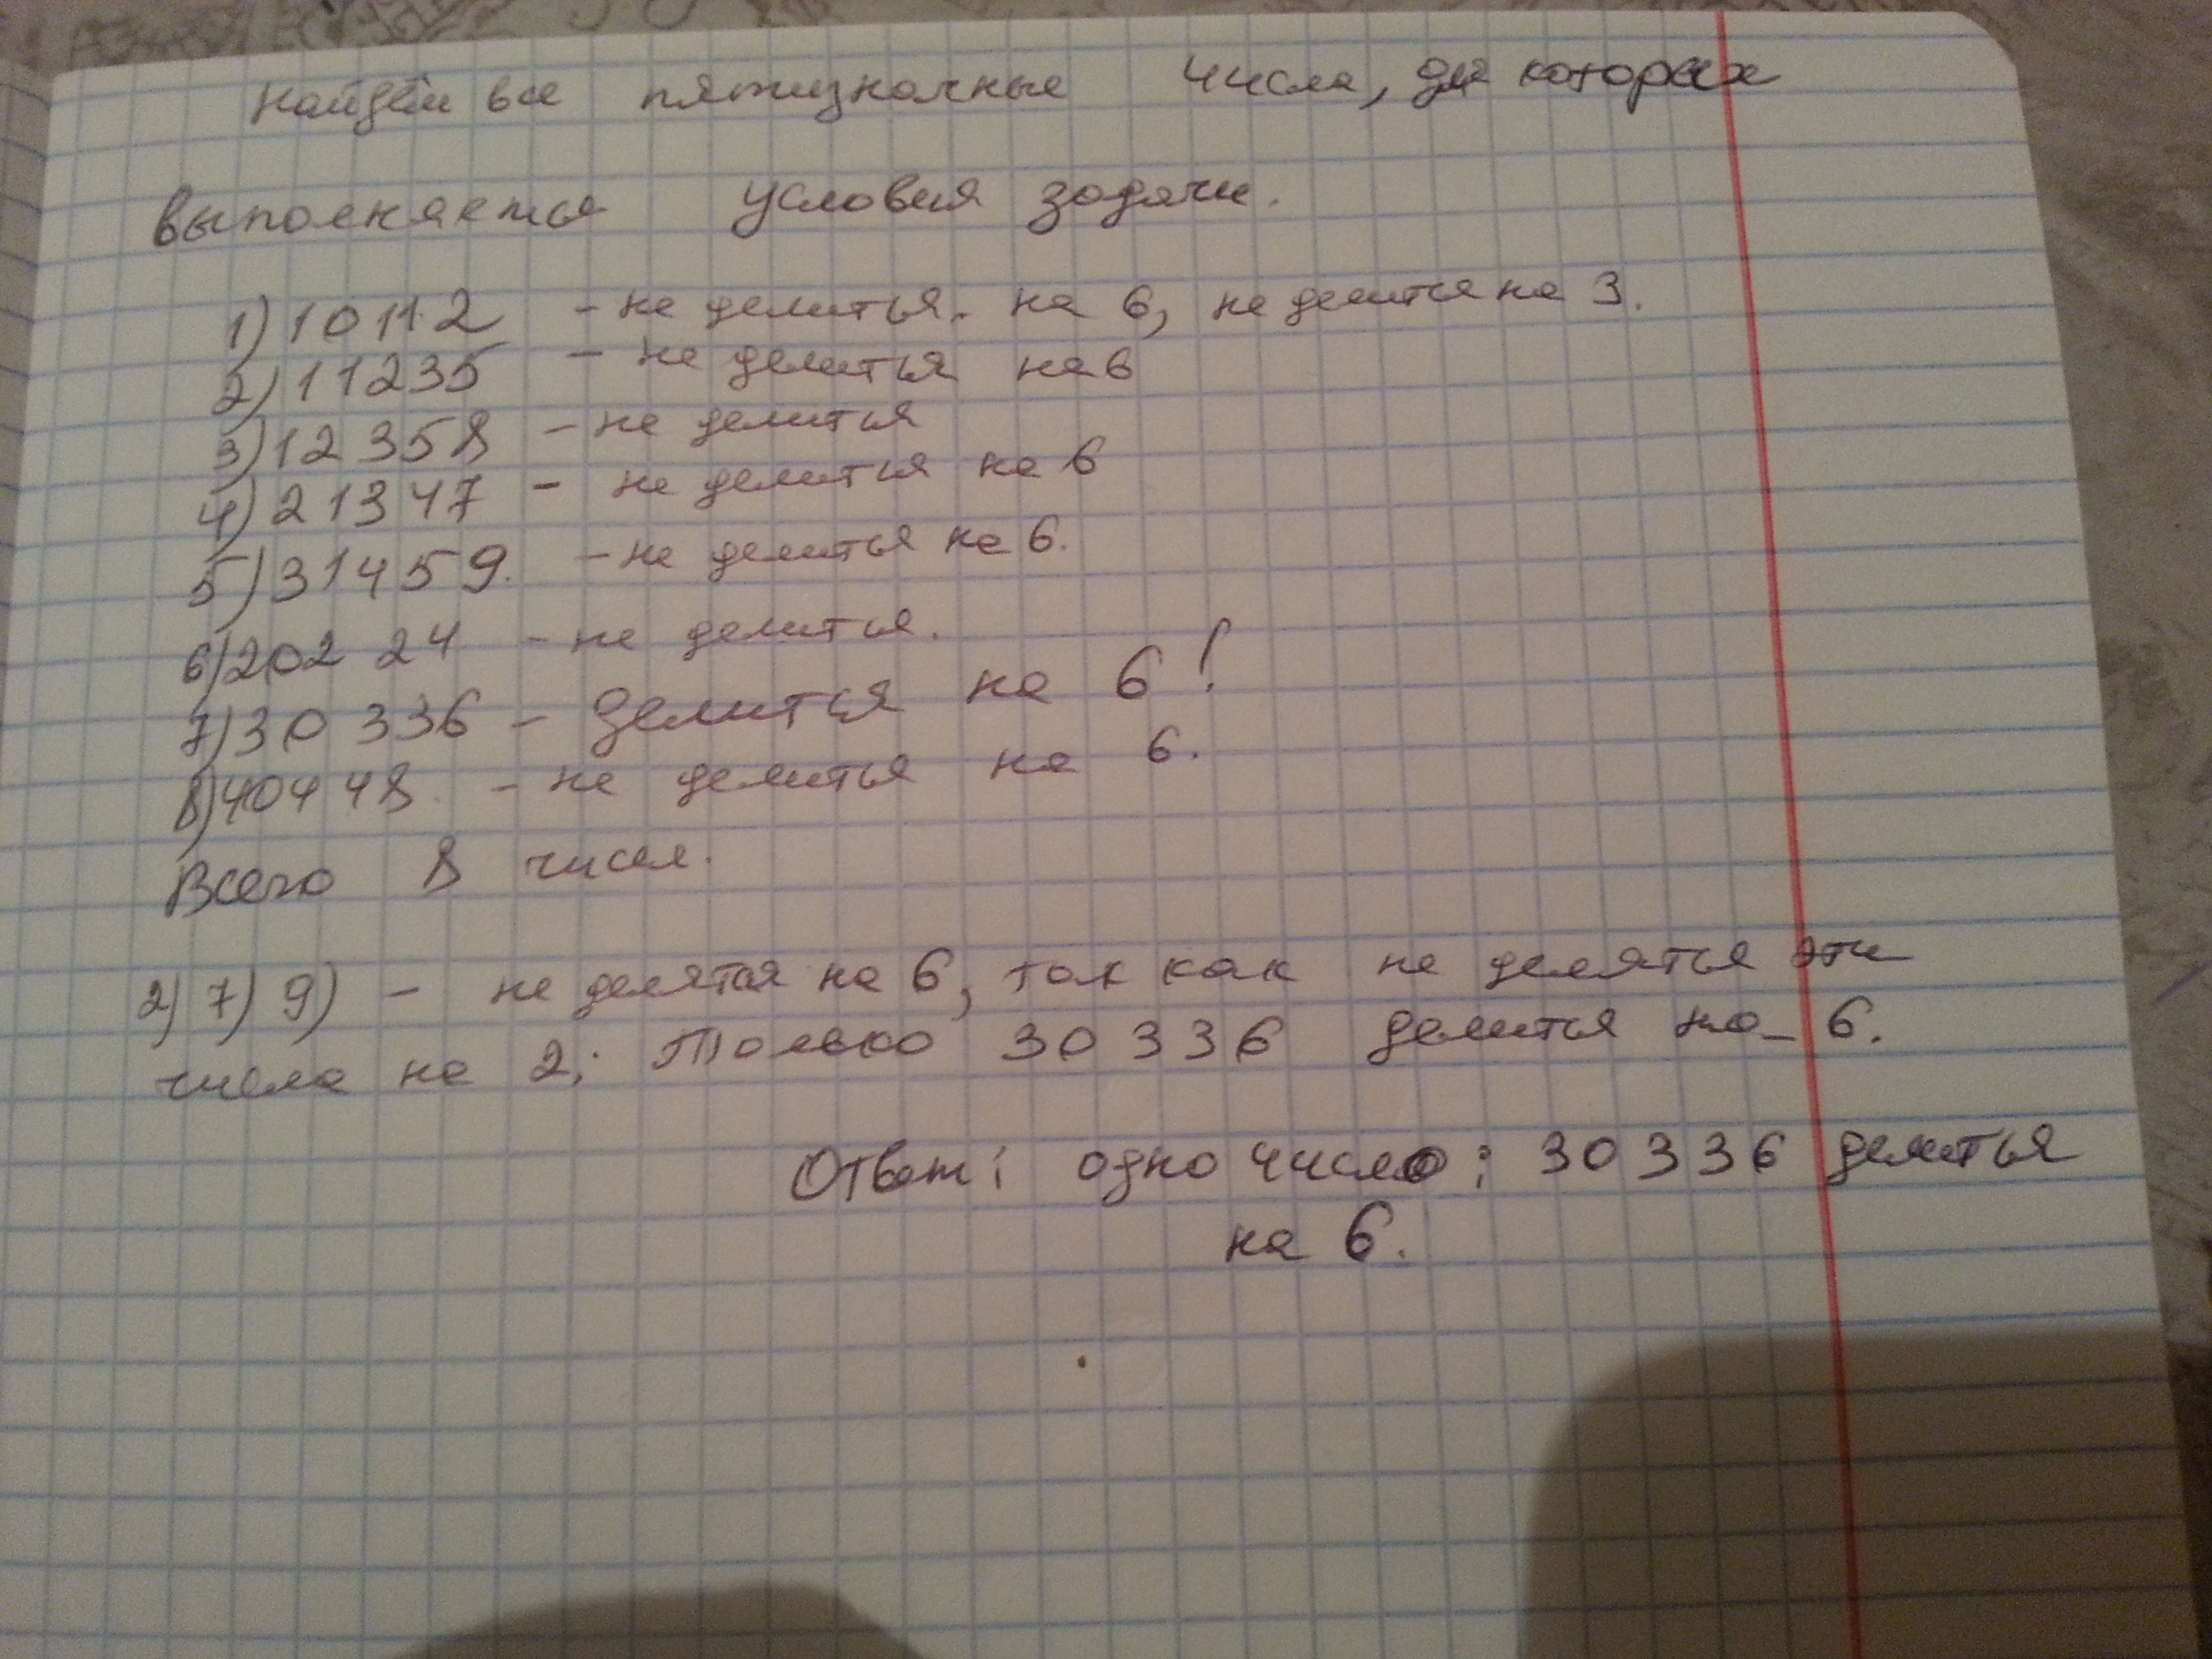 Найдём все пятизначные числа, для которых
выполняется условия задачи.
1) 10112 - не делиться. на 6, не делится на 3.
2) 11235 - не делиться на 6
3) 12358 - не делиться
4) 21347 - не делиться на 6
5) 31459. - не делиться на 6.
6) 202 24 - не делиться.
7) 30 336 - делиться на 6!
8) 40448. - не делиться на 6.
Всего 8 чисел.
2) 7) 9) - не делятся на 6, так как не деляться эти
числа на 2; Только 30 336 делится на 6.
Ответ: одно число: 30 336 делиться
на 6.